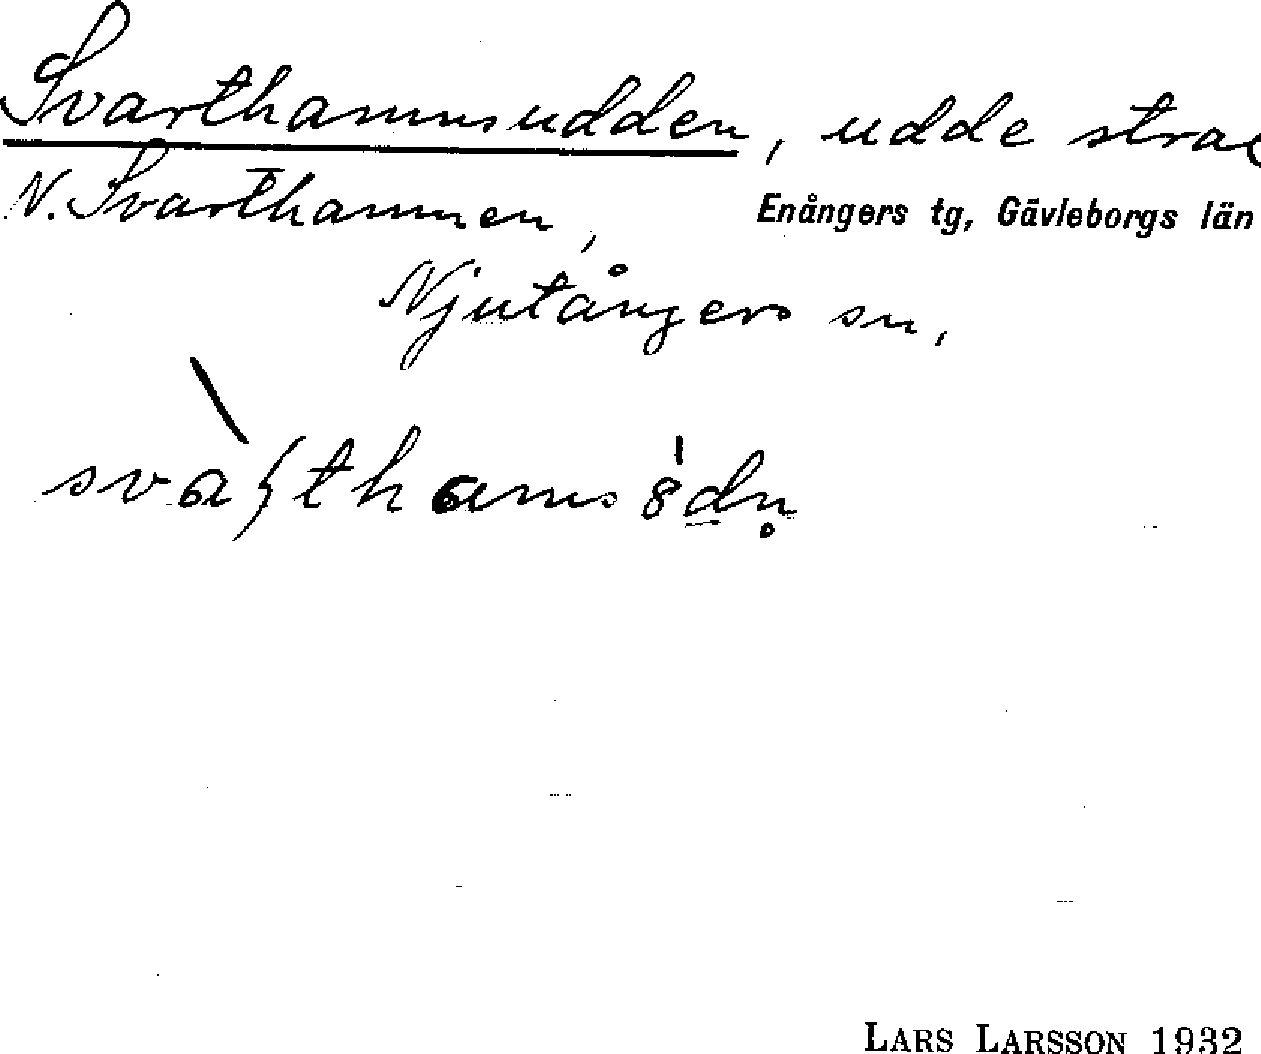 Svarthamnsudden, udde strax
N. Svarthamnen,
Enångers tg, Gävleborgs län
Njutångers sn,
LARS LARSSON 1932